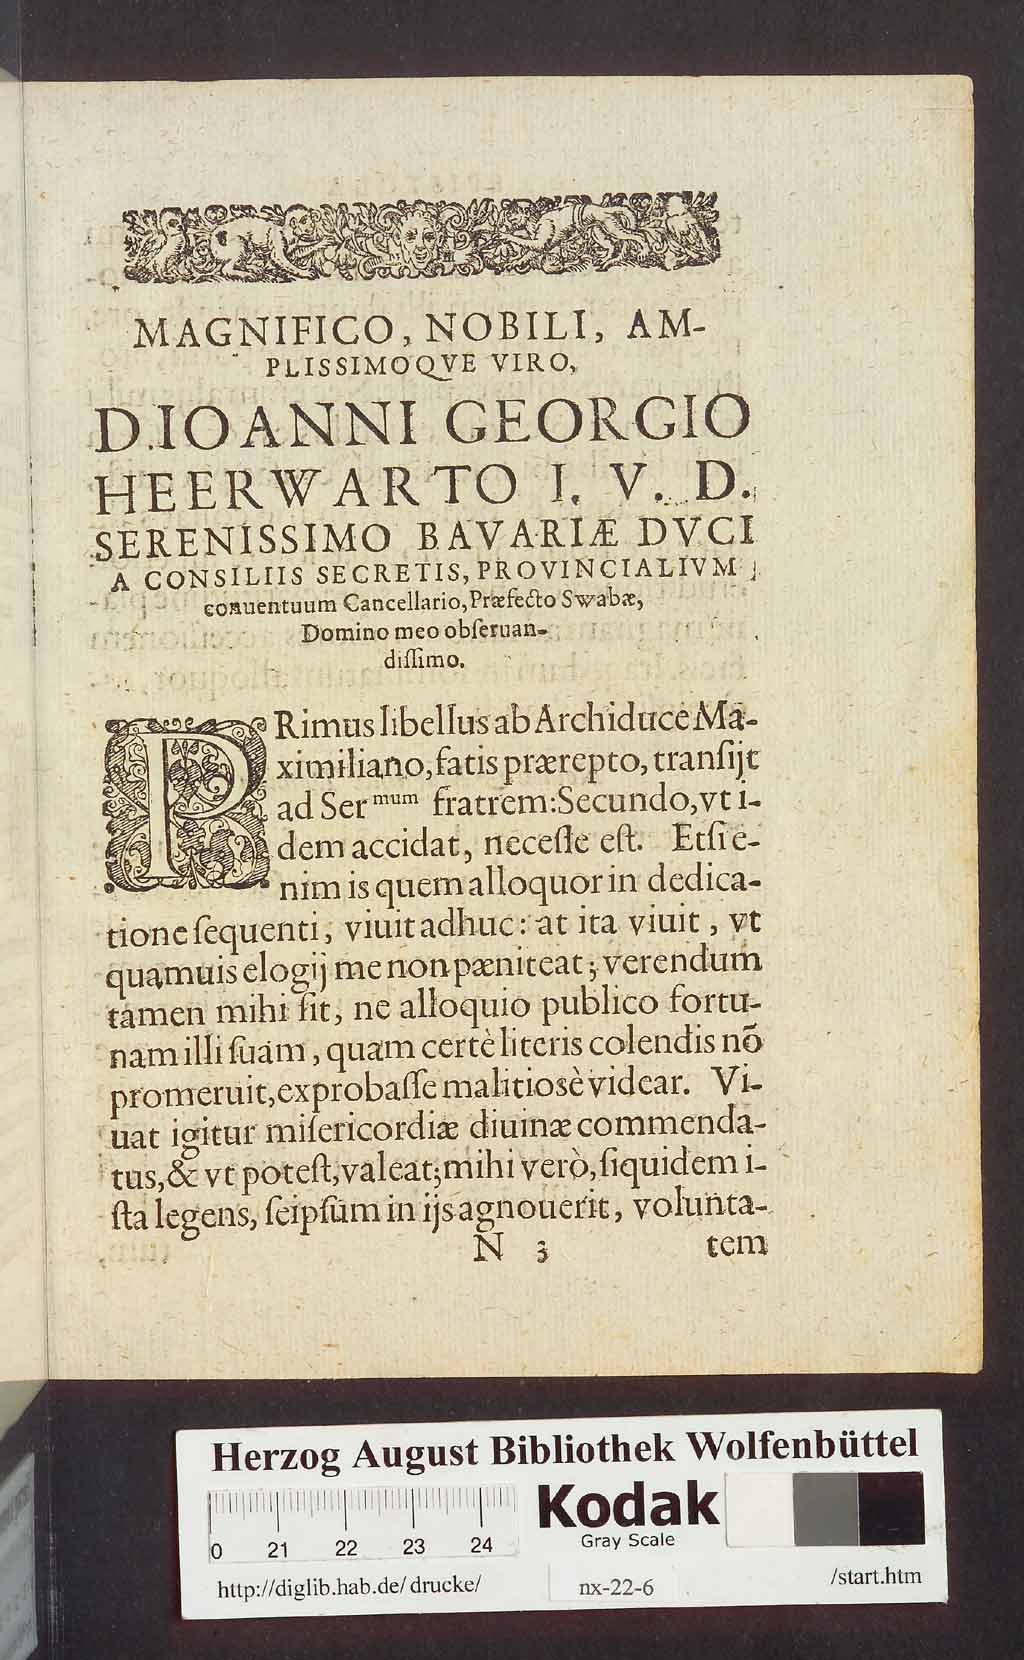 MAGNIFICO, NOBILI, AM-
PLISSIMOQVE VIRO,
D. IOANNI GEORGIO
HEERWARTO I. V. D.
SERENISSIMO BAVARIÆ DVCI
A CONSILIIS SECRETIS, PROVINCIALIVM
conuentuum Cancellario, Præfecto Swabæ,
Domino meo obſeruan-
diſſimo.
PRimus libellus ab Archiduce Ma-
ximiliano, fatis prærepto, tranſijt
ad Ser^mum fratrem: Secundo, vt i-
dem accidat, neceſſe eſt. Etſi e-
nim is quem alloquor in dedica-
tione ſequenti, viuit adhuc: at ita viuit, vt
quamuis elogij me non pæniteat; verendum
tamen mihi ſit, ne alloquio publico fortu-
nam illi ſuam, quam certè literis colendis nõ
promeruit, exprobaſſe malitiosè videar. Vi-
uat igitur miſericordiæ diuinæ commenda-
tus, & vt poteſt, valeat; mihi verò, ſiquidem i-
ſta legens, ſeipſum in ijs agnouerit, volunta-
N 3 tem
Herzog August Bibliothek Wolfenbüttel
Kodak
Gray Scale
0 21 22 23 24
http://diglib.hab.de/drucke/ nx-22-6 /start.htm